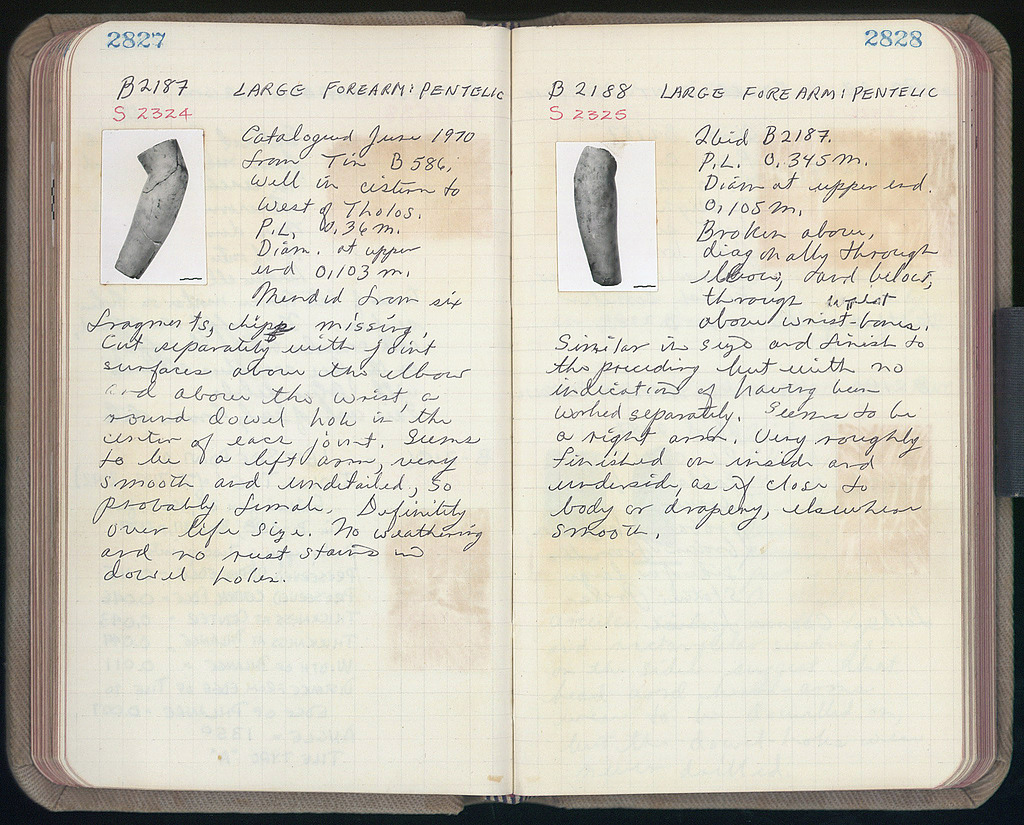 2827
B 2187 LARGE FOREARM: PENTELIC
S 2324
Catalogued June 1970
from Tin B 586,
well in cistern to
West of Tholos.
P.L. 0.36 m.
Diam. at upper
end 0.103 m.
Mended from six
fragments, chips missing.
Cut separately with joint
surfaces above the elbow
and above the wrist, a
round dowel hole in the
center of each joint. Seems
to be a left arm, very
smooth and undetailed, so
probably female. Definitely
over life size. No weathering
and no rust stains in
dowel holes.
2828
B 2188 LARGE FOREARM: PENTELIC
S 2325
Ibid B 2187.
P.L. 0.345 m.
Diam at upper end.
0.105 m.
Broken above,
diagonally through
elbow, and below,
through
above wrist-bones.
Similar in size and finish to
the preceding but with no
indication of having been
worked separately. Seems to be
a right arm. Very roughly
finished on inside and
underside, as if close to
body or drapery, elsewhere
smooth.